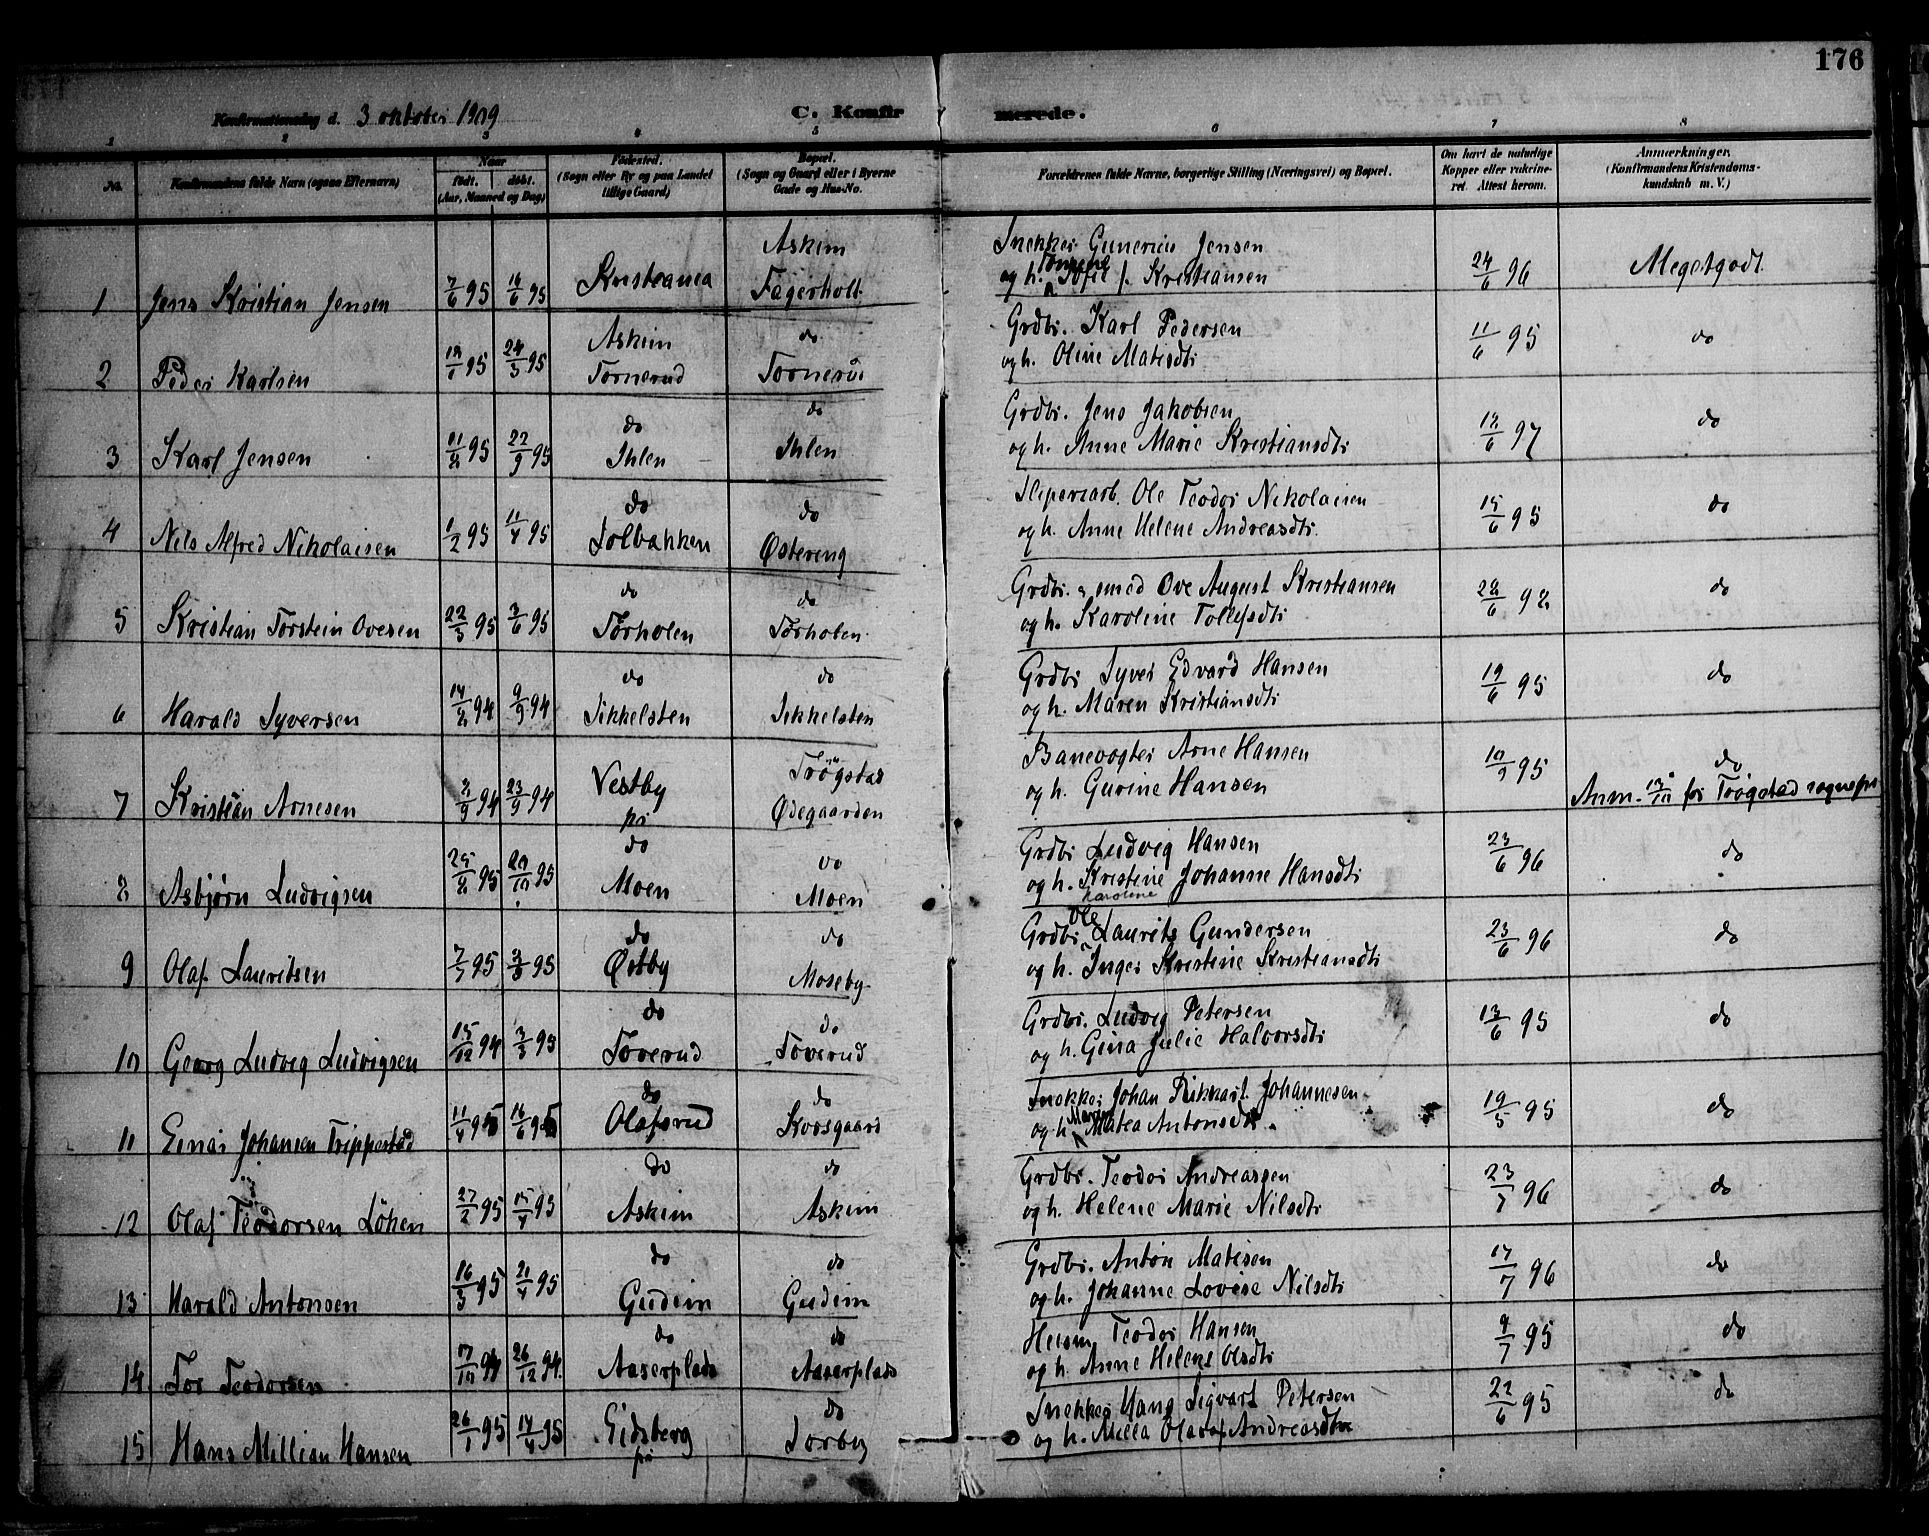 176
Konfirmationsdag d. 3 oktober 1909 C. Konfirmerede.
1 2 3 4 5 6 7 8
No. Konfirmandens fulde Navn (ogsaa Efternavn) Naar født. døbt. (Aar, Maaned og Dag) Fødested. (Sogn eller By og paa Landet tillige Gaard) Bopæl. (Sogn og Gaard eller i Byerne Gade og Hus-No. Forældrenes fulde Navne, borgerlige Stilling (Næringsvei) og Bopæl. Om havt de naturlige Kopper eller vakcineret. Attest herom. Anmærkninger. (Konfirmandens Kristendomskundskab m. V.)
1 Jens Kristian Jensen 7/6 95 16/6 95 Kristiania Askim Fagerholt Snekker Gunerius Jensen 24/6 96 Megetgodt
og h. Sofie f. Kristiansen
2 Peder Karlsen 95 24/3 95 Askim Tornerud do Tornerud Grdbr. Karl Pedersen 11/6 95 do
og h. Oline Matisdtr
3 Karl Jensen 11/8 95 22/9 95 do Ihlen do Ihlen Grdbr. Jens Jakobsen 12/6 97 do
og h. Anne Marie Kristiansdtr
4 Nils Alfred Nikolaisen 1/2 95 11/4 95 do Solbakken do Østereng Sliperiarb. Ole Teodor Nikolaisen 15/6 95 do
og h. Anne Helene Andreasdtr.
5 Kristian Torstein Ovesen 22/3 95 3/6 95 do Torholen do Torholen Grdbr. & smed Ove August Kristiansen 22/6 92 do
og h. Karoline Tollefsdtr
6 Harald Syversen 14/8 94 9/9 94 do Sikkelsten do Sikkelsten Grdbr Syver Edvard Hansen 19/6 95 do
og h. Maren Kristiansdtr
7 Kristian Arnesen 2/9 94 23/9 94 Vestby pr Trøgstad Ødegaarden Banevogter Arne Hansen 10/9 95 do
og h. Gurine Hansen Anm. 13/10 for Trøgstad sognepr
8 Asbjørn Ludvigsen 25/8 95 20/10 95 do Moen do Moen Grdbr Ludvig Hansen 23/6 96 do
og h. Kristine Johanne Hansdtr
Karoline
9 Olaf Lauritsen 7/7 95 95 do Østby do Moseby Grdbr. Ole Laurits Gundersen 23/6 96 do
og h. Inger Kristine Kristiansdtr
10 Georg Ludvig Ludvigsen 15/12 94 3/3 95 do Toverud do Toverud Grdbr. Ludvig Petersen 13/6 95 do
og h. Gina Julie Halvorsdtr
11 Einar Johansen Trippestad 11/4 95 16/6 95 do Olafsrud do Korsgaard Snekker Johan Rikkart Johannesen 19/5 95 do
og h. Matea Antonsdtr.
12 Olaf Teodorsen Løken 27/2 95 15/4 95 do Askim do Askim Grdbr. Teodor Andreassen 23/7 96 do
og h. Helene Marie Nilsdtr
13 Harald Antonsen 16/3 95 21/4 95 do Gudim do Gudim Grdbr. Anton Matisen 17/7 96 do
og h. Johanne Lovise Nilsdtr
14 Tor Teodorsen 17/10 94 26/12 94. do Aaserplads do Aaserplads Husm Teodor Hansen 9/7 95 do
og h. Anne Helene Olsdtr
15 Hans Millian Hansen 26/1 95 14/4 95 Eidsberg pr do Sorby Snekker Hans Sigvart Petersen 22/6 95 do
og h. Milla Andreasdtr